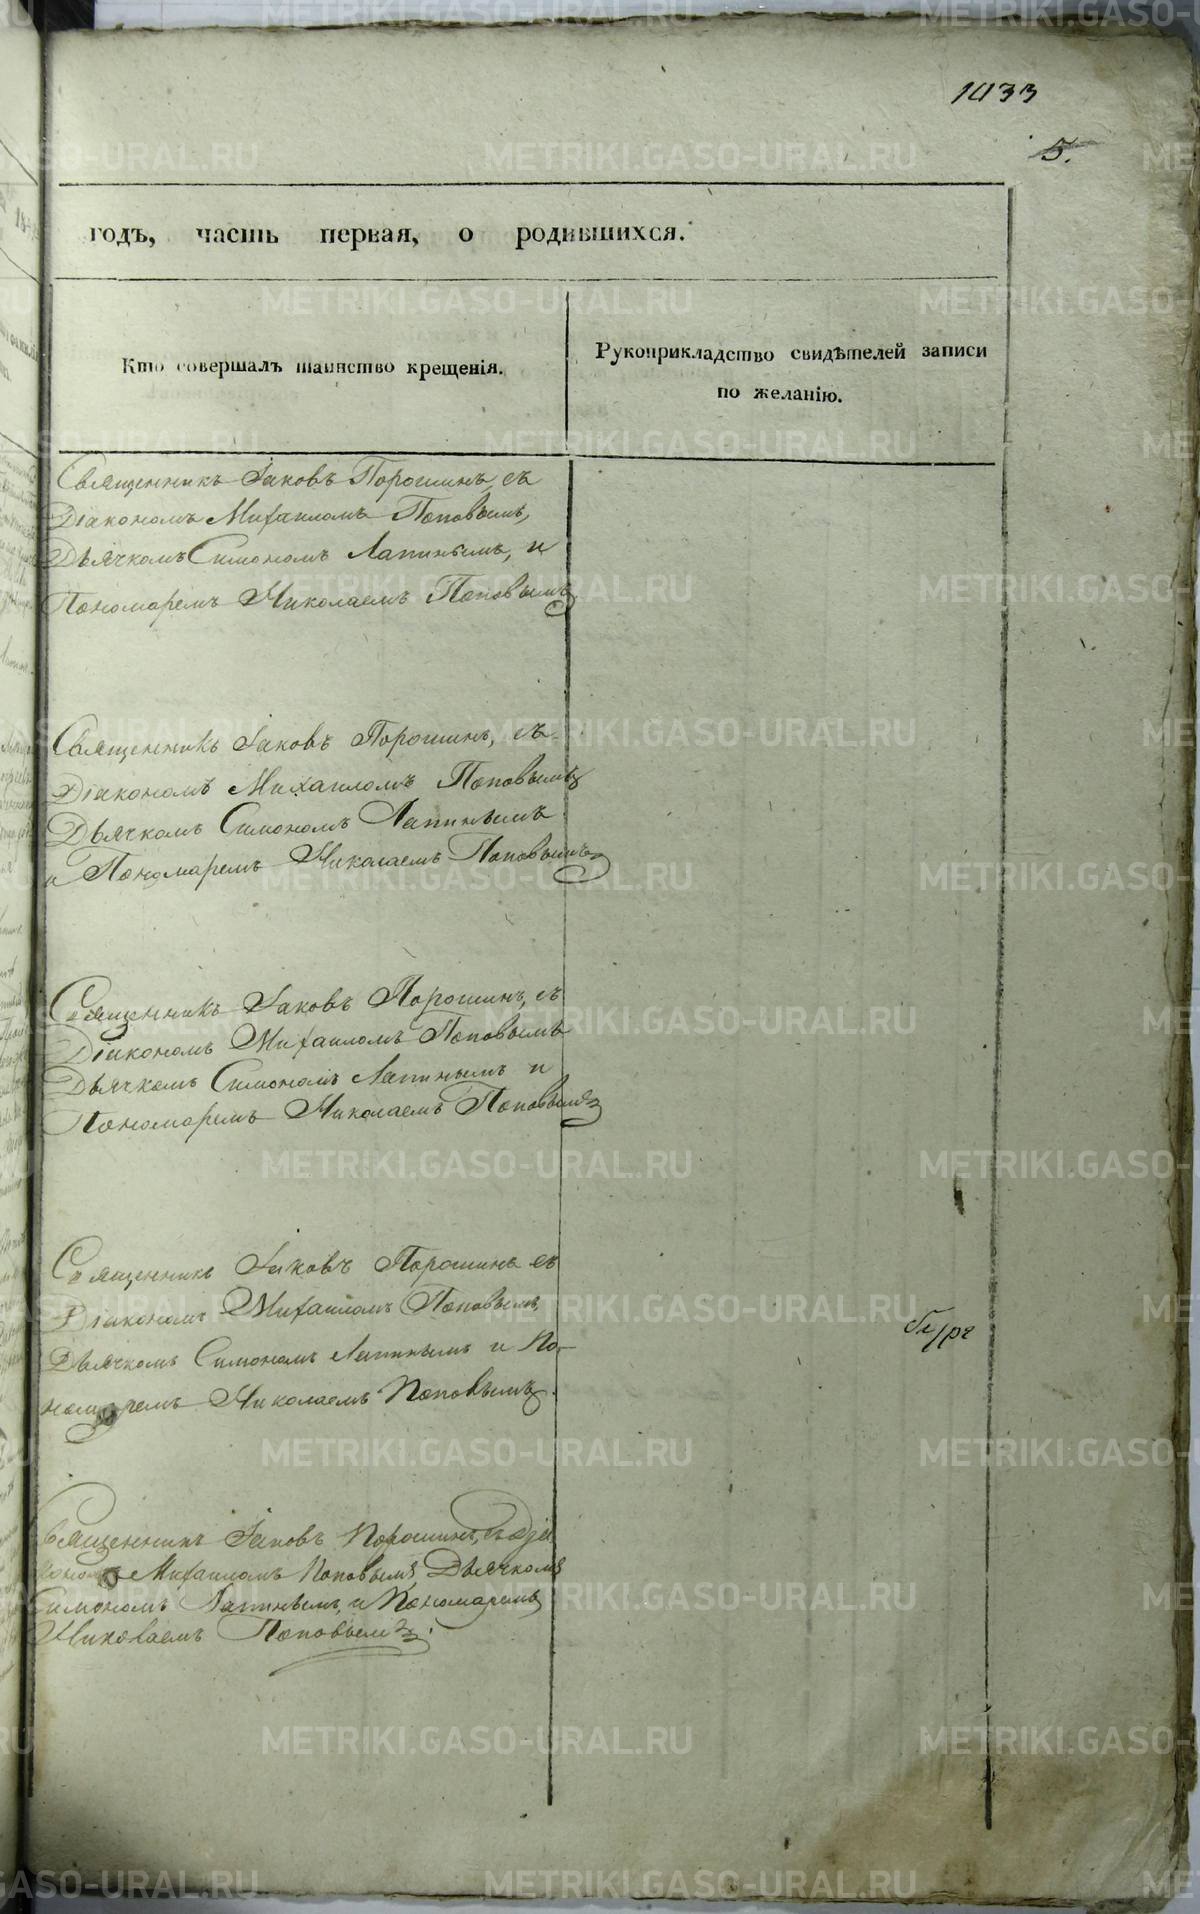 1033
5.
годъ, часть первая, о родившихся.
Кто совершалъ таинство крещенія.
Рукоприкладство свидѣтелей записи
по желанію.
Священникъ Іаковъ Порошинъ, съ
Діакономъ Михаиломъ Поповымъ,
Дьячкомъ Симономъ Лапинымъ, и
Пономаремъ Николаемъ Поповымъ
Священникъ Іаковъ Порошинъ, съ
Діакономъ Михаиломъ Поповымъ
Дьячкомъ Симономъ Лапинымъ
и Пономаремъ Николаемъ Поповымъ
Священникъ Іаковъ Порошинъ, съ
Діакономъ Михаиломъ Поповымъ
Дьячкомъ Симономъ Лапинымъ и
Пономаремъ Николаемъ Поповымъ
Священникъ Іаковъ Порошинъ съ
Діакономъ Михаиломъ Поповымъ,
Дьячкомъ Симономъ Лапинымъ и По-
номаремъ Николаемъ Поповымъ.
Священникъ Іаковъ Порошинъ, съ Діа
кономъ Михаиломъ Поповымъ Дьячкомъ
Симономъ Лапинымъ, и Пономаремъ
Николаемъ Поповымъ.
METRIKI.GASO-URAL.RU